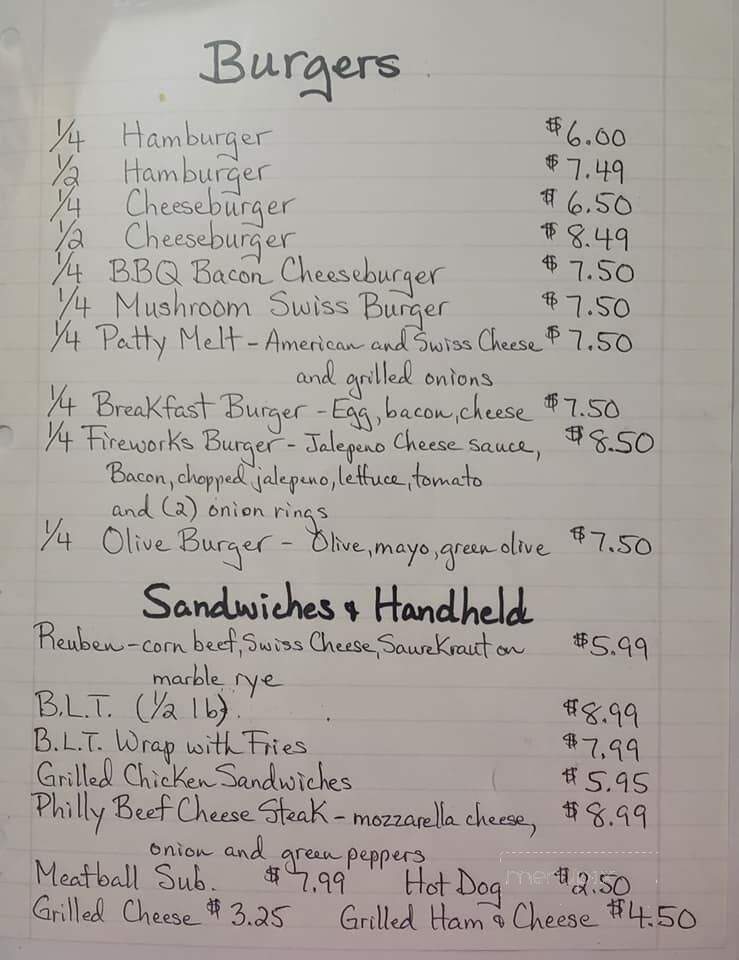 Burgers
1/4 Hamburger $6.00
1/2 Hamburger $7.49
1/4 Cheeseburger $6.50
1/2 Cheeseburger $8.49
1/4 BBQ Bacon Cheeseburger $7.50
1/4 Mushroom Swiss Burger $7.50
1/4 Patty Melt - American and Swiss Cheese $7.50
and grilled onions
1/4 Breakfast Burger - Egg, bacon, cheese $7.50
1/4 Fireworks Burger - Jalepeno Cheese sauce, $8.50
Bacon, chopped jalepeno, lettuce, tomato
and (2) onion rings
1/4 Olive Burger - Olive, mayo, green olive $7.50
Sandwiches & Handheld
Reuben - corn beef, Swiss Cheese, SaureKraut on $5.99
marble rye
B.L.T. (1/2 lb). $8.99
B.L.T. Wrap with Fries $7.99
Grilled Chicken Sandwiches $5.95
Philly Beef Cheese Steak - mozzarella cheese, $8.99
onion and green peppers
Meatball Sub. $7.99 Hot Dog $2.50
Grilled Cheese $3.25 Grilled Ham & Cheese $4.50